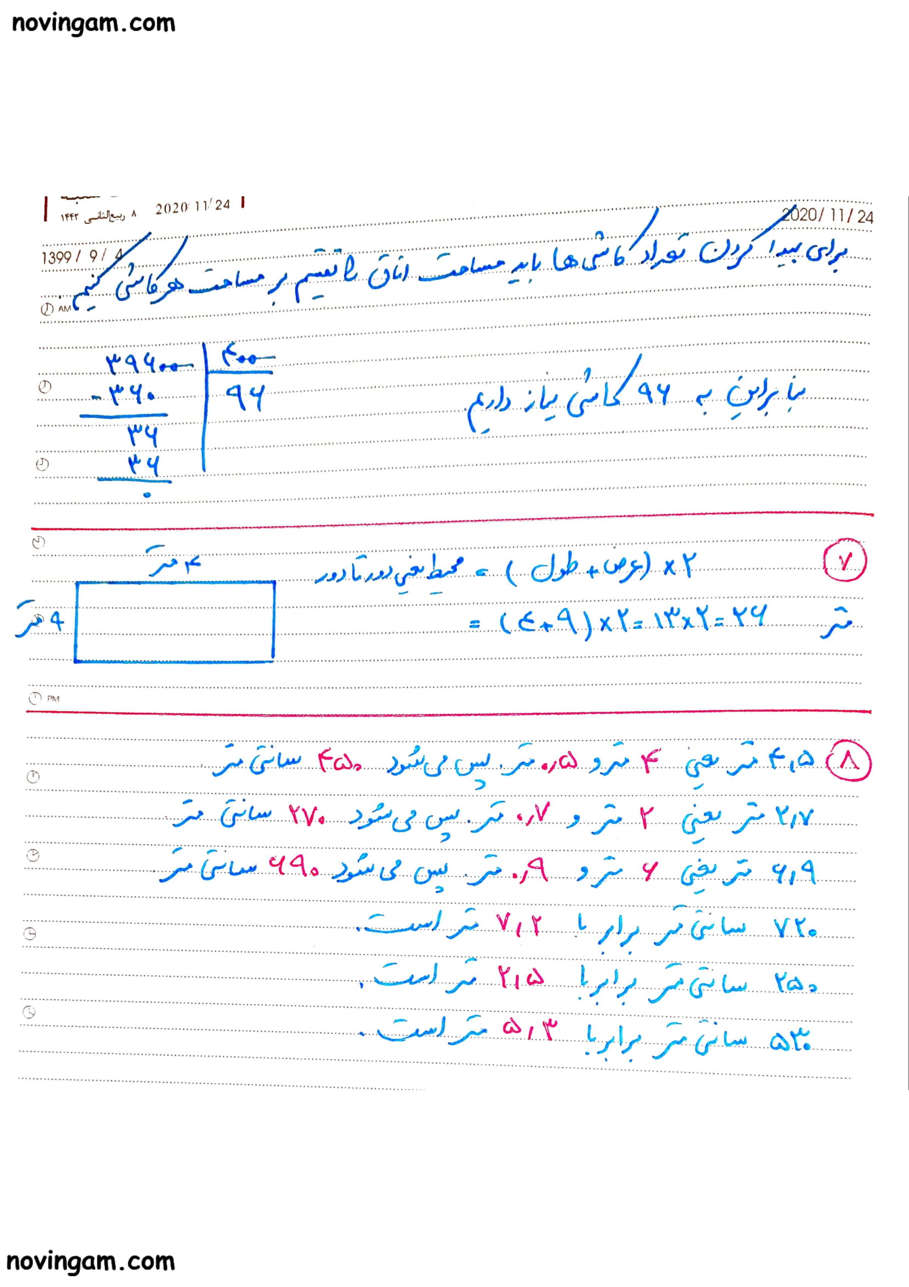 novingam.com
۸ ربیع‌الثانی ۱۴۴۲ 2020/11/24
2020/11/24
1399/9/4
برای پیدا کردن تعداد کاشی‌ها باید مساحت اتاق را تقسیم بر مساحت هر کاشی کنیم.
AM
۳۹۶۰۰ ۴۰۰
-۳۶۰ ۹۶
بنابراین به ۹۶ کاشی نیاز داریم
۳۶
۳۶
۰
۷ محیط یعنی دور تا دور = (عرض + طول) × ۲
۴ متر
= (۴+۹)×۲=۱۳×۲=۲۶ متر
۹ متر
PM
۸ ۴٫۵ متر یعنی ۴ متر و ۰٫۵ متر. پس می‌شود ۴۵۰ سانتی متر
۲٫۷ متر یعنی ۲ متر و ۰٫۷ متر. پس می‌شود ۲۷۰ سانتی متر
۶٫۹ متر یعنی ۶ متر و ۰٫۹ متر. پس می‌شود ۶۹۰ سانتی متر
۷۲۰ سانتی متر برابر با ۷٫۲ متر است.
۲۵۰ سانتی متر برابر با ۲٫۵ متر است.
۵۳۰ سانتی متر برابر با ۵٫۳ متر است.
novingam.com